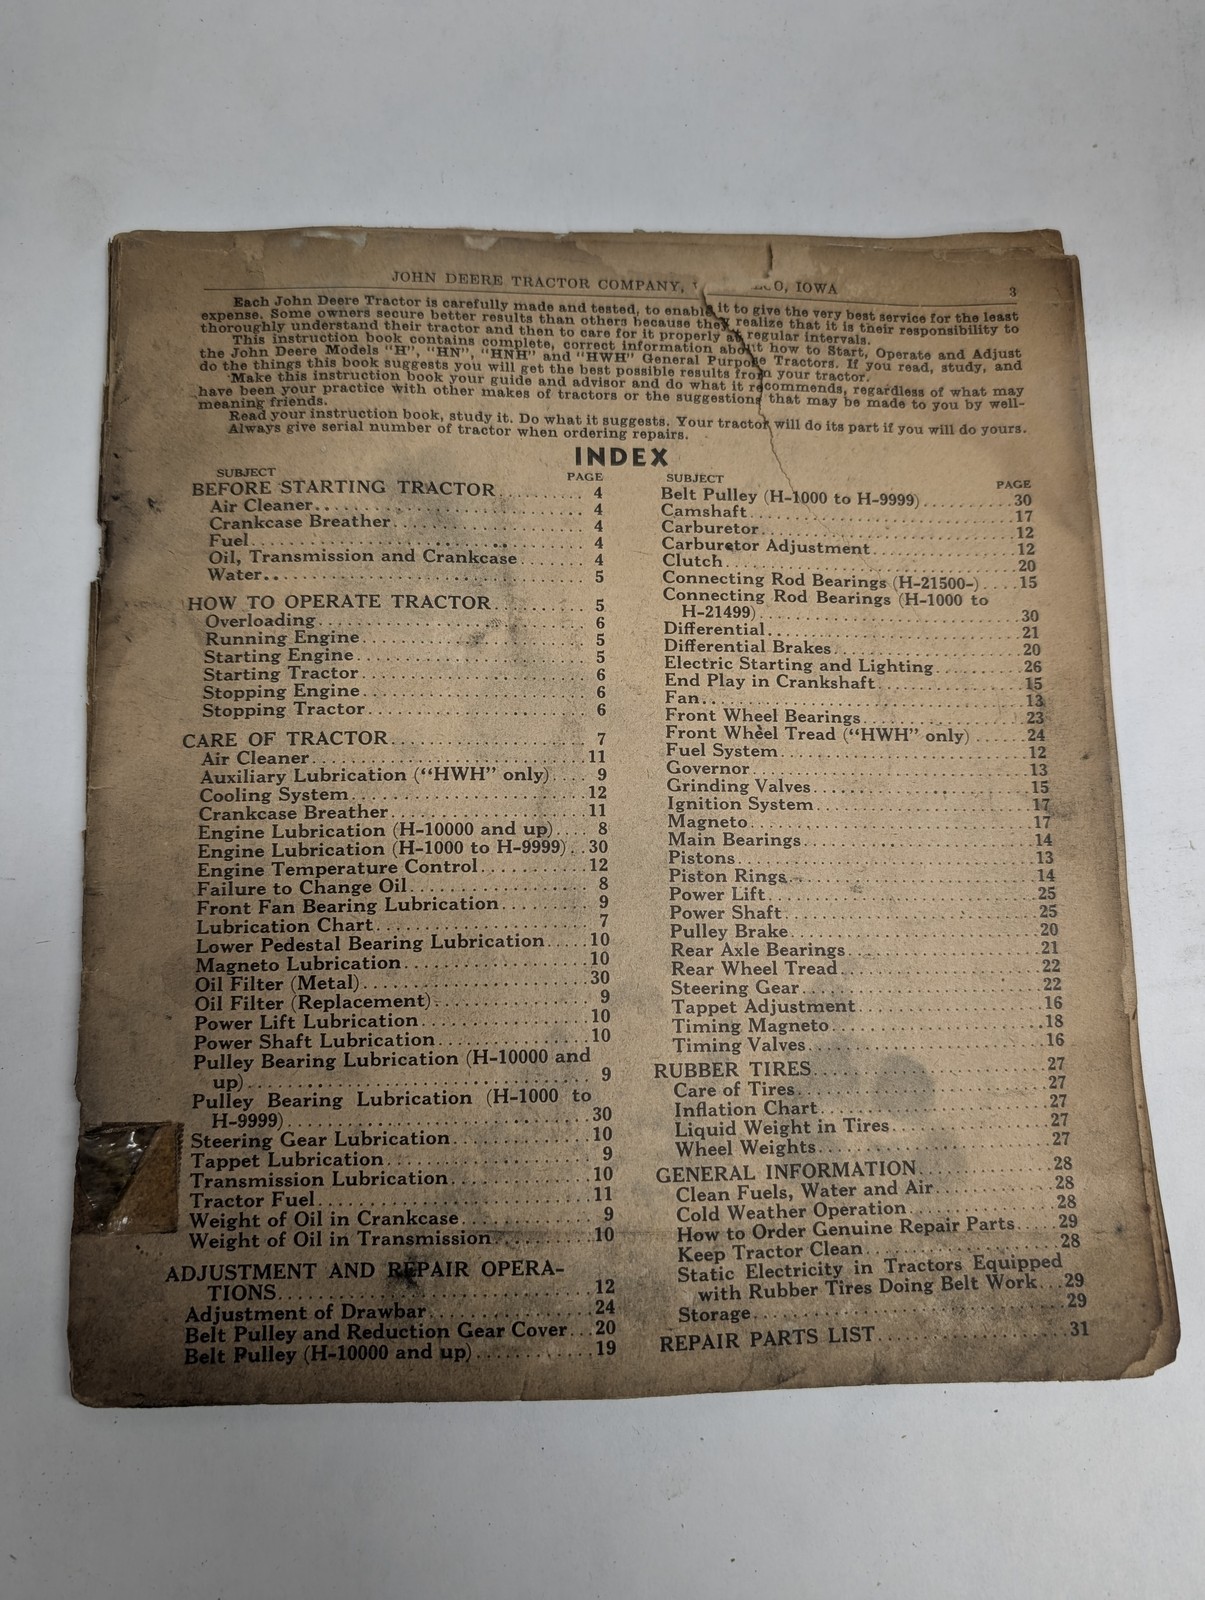 JOHN DEERE TRACTOR COMPANY, O, IOWA
3
Each John Deere Tractor is carefully made and tested, to enable it to give the very best service for the least
expense. Some owners secure better results than others because they realize that it is their responsibility to
thoroughly understand their tractor and then to care for it properly at regular intervals.
This instruction book contains complete, correct information about how to Start, Operate and Adjust
the John Deere Models "H", "HN", "HNH" and "HWH" General Purpose Tractors. If you read, study, and
do the things this book suggests you will get the best possible results from your tractor.
Make this instruction book your guide and advisor and do what it recommends, regardless of what may
have been your practice with other makes of tractors or the suggestions that may be made to you by well-
meaning friends.
Read your instruction book, study it. Do what it suggests. Your tractor will do its part if you will do yours.
Always give serial number of tractor when ordering repairs.
INDEX
SUBJECT PAGE
BEFORE STARTING TRACTOR.......... 4
Air Cleaner.......... 4
Crankcase Breather.......... 4
Fuel.......... 4
Oil, Transmission and Crankcase....... 4
Water.......... 5
HOW TO OPERATE TRACTOR.......... 5
Overloading.......... 6
Running Engine.......... 5
Starting Engine.......... 5
Starting Tractor.......... 6
Stopping Engine.......... 6
Stopping Tractor.......... 6
CARE OF TRACTOR.......... 7
Air Cleaner.......... 11
Auxiliary Lubrication ("HWH" only).... 9
Cooling System.......... 12
Crankcase Breather.......... 11
Engine Lubrication (H-10000 and up).... 8
Engine Lubrication (H-1000 to H-9999).. 30
Engine Temperature Control.......... 12
Failure to Change Oil.......... 8
Front Fan Bearing Lubrication.......... 9
Lubrication Chart.......... 7
Lower Pedestal Bearing Lubrication..... 10
Magneto Lubrication.......... 10
Oil Filter (Metal).......... 30
Oil Filter (Replacement).......... 9
Power Lift Lubrication.......... 10
Power Shaft Lubrication.......... 10
Pulley Bearing Lubrication (H-10000 and
up).......... 9
Pulley Bearing Lubrication (H-1000 to
H-9999).......... 30
Steering Gear Lubrication.......... 10
Tappet Lubrication.......... 9
Transmission Lubrication.......... 10
Tractor Fuel.......... 11
Weight of Oil in Crankcase.......... 9
Weight of Oil in Transmission.......... 10
ADJUSTMENT AND REPAIR OPERA-
TIONS.......... 12
Adjustment of Drawbar.......... 24
Belt Pulley and Reduction Gear Cover... 20
Belt Pulley (H-10000 and up).......... 19
SUBJECT PAGE
Belt Pulley (H-1000 to H-9999).......... 30
Camshaft.......... 17
Carburetor.......... 12
Carburetor Adjustment.......... 12
Clutch.......... 20
Connecting Rod Bearings (H-21500-).... 15
Connecting Rod Bearings (H-1000 to
H-21499).......... 30
Differential.......... 21
Differential Brakes.......... 20
Electric Starting and Lighting.......... 26
End Play in Crankshaft.......... 15
Fan.......... 13
Front Wheel Bearings.......... 23
Front Wheel Tread ("HWH" only)...... 24
Fuel System.......... 12
Governor.......... 13
Grinding Valves.......... 15
Ignition System.......... 17
Magneto.......... 17
Main Bearings.......... 14
Pistons.......... 13
Piston Rings.......... 14
Power Lift.......... 25
Power Shaft.......... 25
Pulley Brake.......... 20
Rear Axle Bearings.......... 21
Rear Wheel Tread.......... 22
Steering Gear.......... 22
Tappet Adjustment.......... 16
Timing Magneto.......... 18
Timing Valves.......... 16
RUBBER TIRES.......... 27
Care of Tires.......... 27
Inflation Chart.......... 27
Liquid Weight in Tires.......... 27
Wheel Weights.......... 27
GENERAL INFORMATION.......... 28
Clean Fuels, Water and Air.......... 28
Cold Weather Operation.......... 28
How to Order Genuine Repair Parts..... 29
Keep Tractor Clean.......... 28
Static Electricity in Tractors Equipped
with Rubber Tires Doing Belt Work... 29
Storage.......... 29
REPAIR PARTS LIST.......... 31